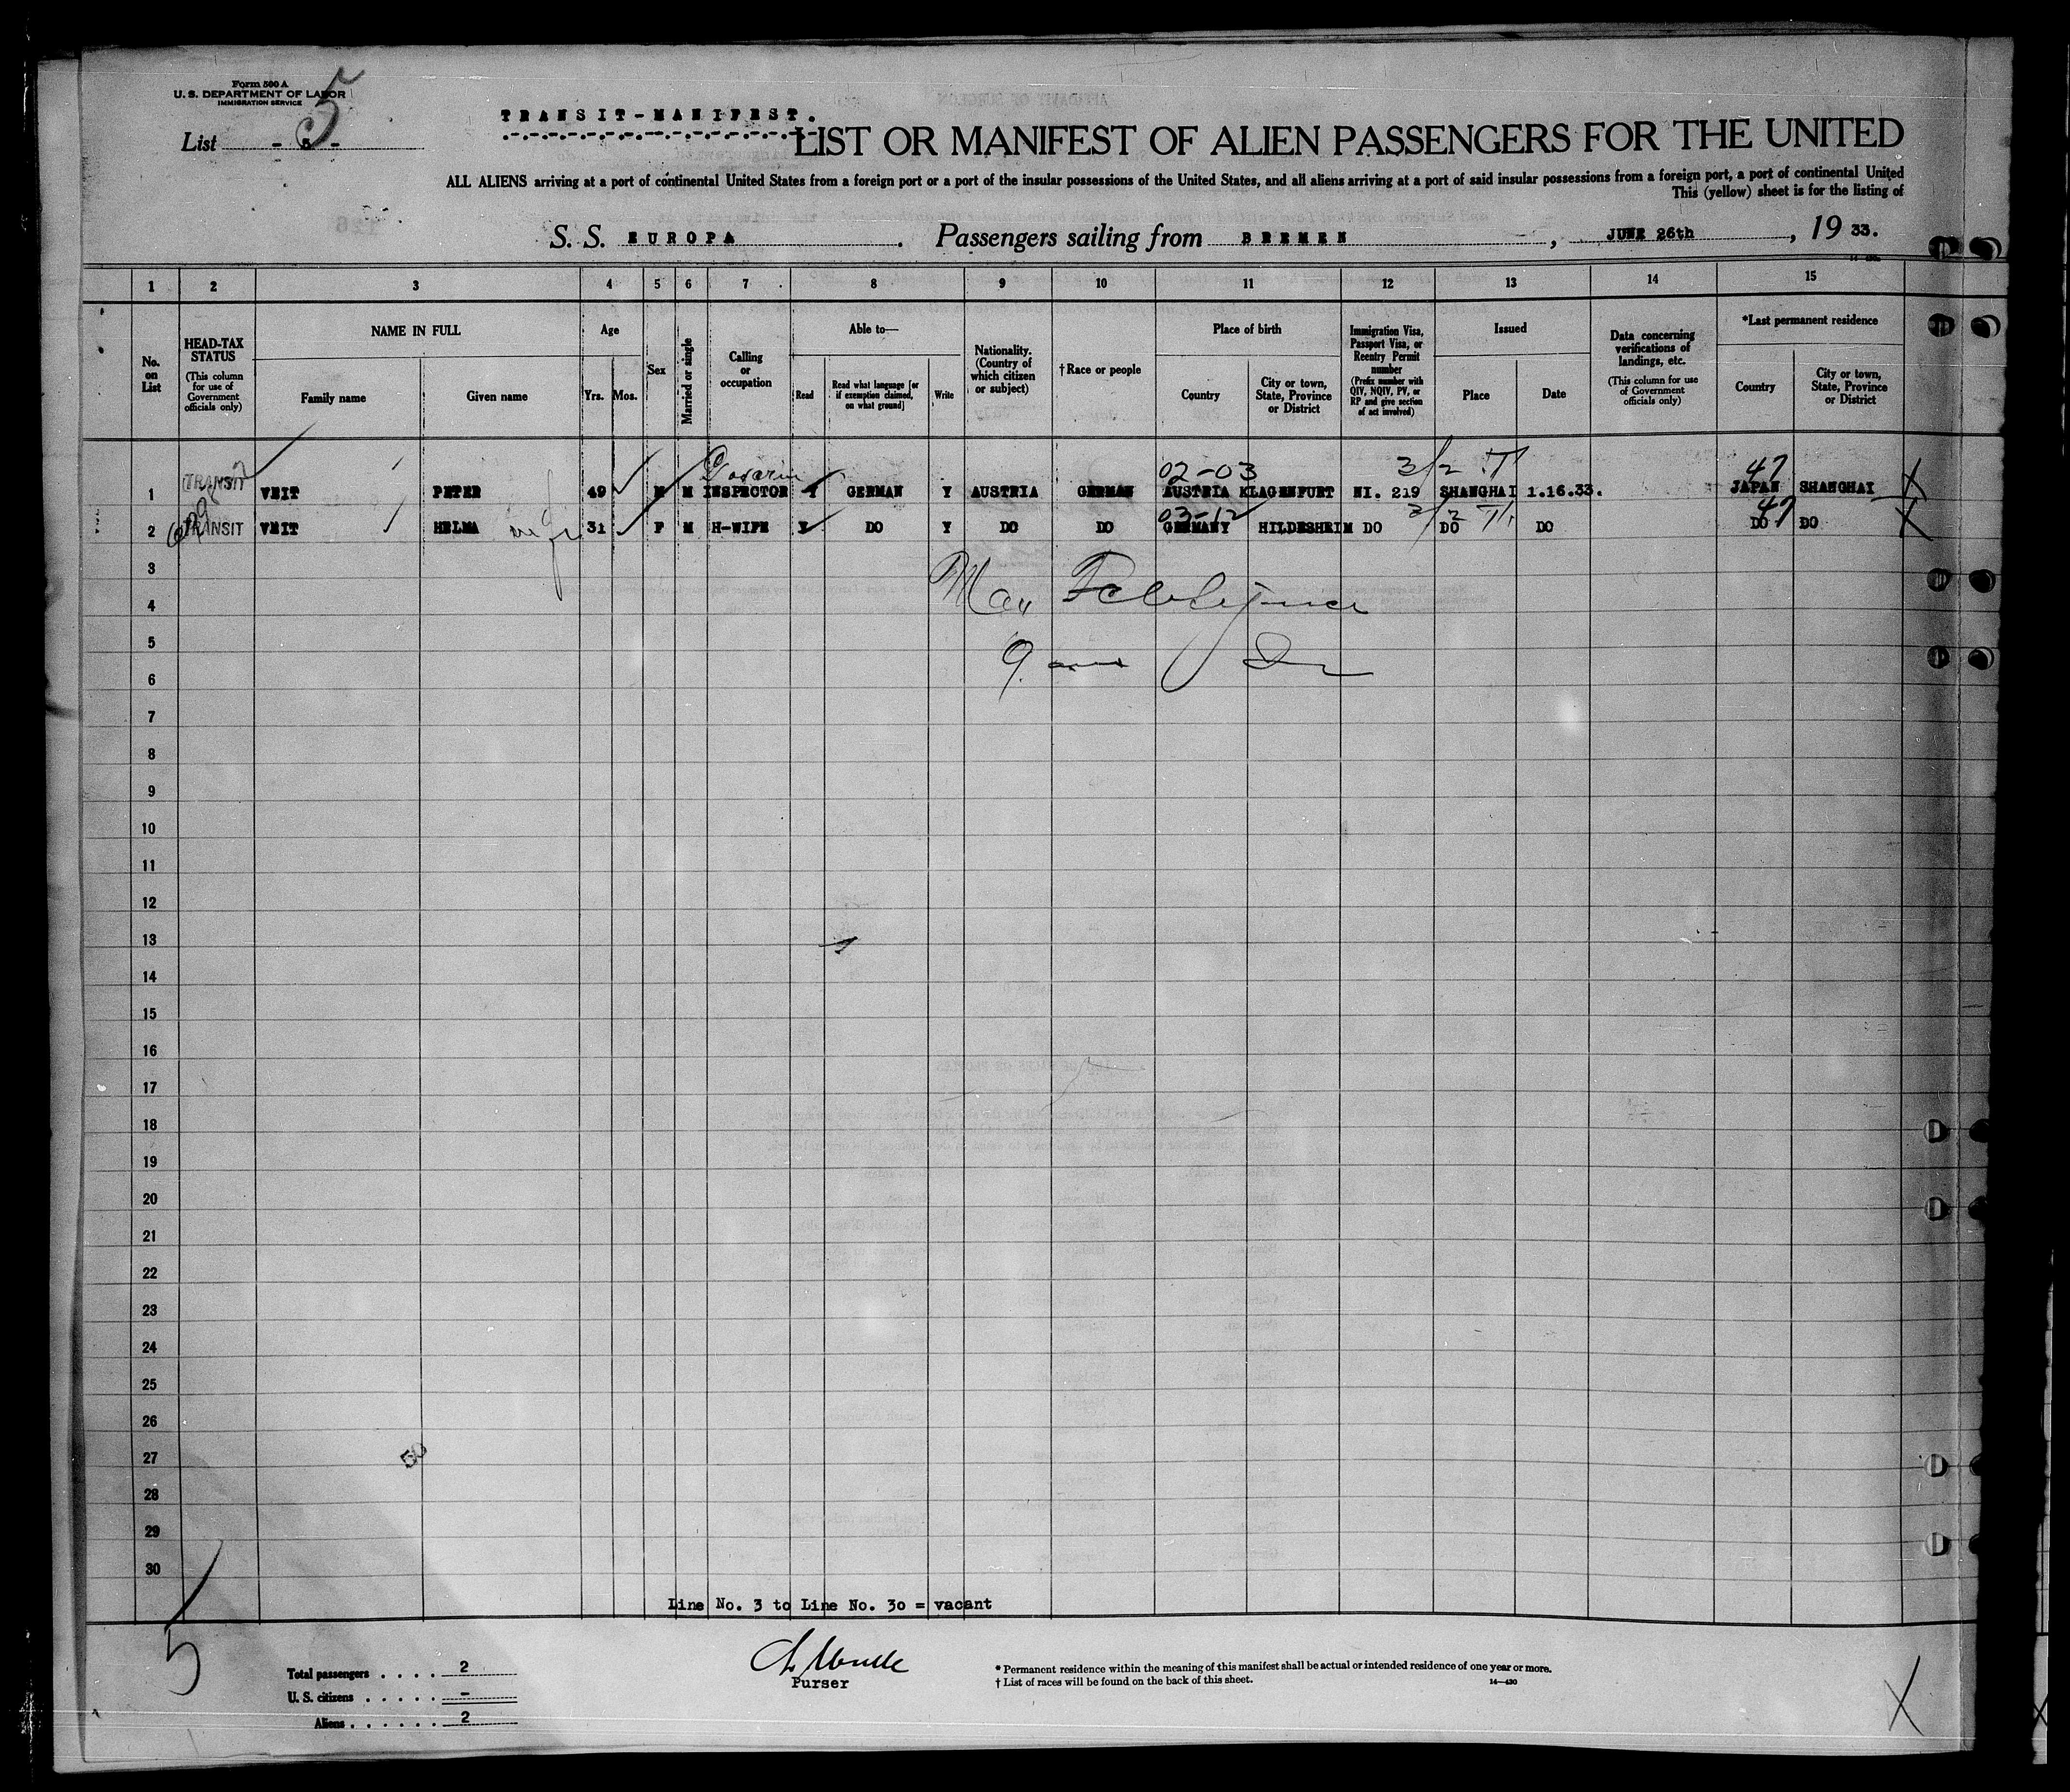 Form 500 A
U. S. DEPARTMENT OF LABOR
IMMIGRATION SERVICE
List - 5 -
5
TRANSIT-MANIFEST.
LIST OR MANIFEST OF ALIEN PASSENGERS FOR THE UNITED
ALL ALIENS arriving at a port of continental United States from a foreign port or a port of the insular possessions of the United States, and all aliens arriving at a port of said insular possessions from a foreign port, a port of continental United
This (yellow) sheet is for the listing of
S. S. EUROPA. Passengers sailing from BREMEN, JUNE 26th, 19 33.
1 2 3 4 5 6 7 8 9 10 11 12 13 14 15
No. on List
HEAD-TAX STATUS
(This column for use of Government officials only)
NAME IN FULL
Family name
Given name
Age
Yrs. Mos.
Sex
Married or single
Calling or occupation
Able to—
Read
Read what language [or if exemption claimed, on what ground]
Write
Nationality. (Country of which citizen or subject)
†Race or people
Place of birth
Country
City or town, State, Province or District
Immigration Visa, Passport Visa, or Reentry Permit number
(Prefix number with QIV, NQIV, PV, or RP and give section of act involved)
Issued
Place
Date
Data concerning verifications of landings, etc.
(This column for use of Government officials only)
*Last permanent residence
Country
City or town, State, Province or District
02-03 3/2 T 47
1 TRANSIT VEIT PETER 49 M M INSPECTOR Y GERMAN Y AUSTRIA GERMAN AUSTRIA KLAGENFURT NI. 219 SHANGHAI 1.16.33. JAPAN SHANGHAI X
03-12 3/2 47
2 TRANSIT VEIT HELMA wife 31 F M H-WIFE Y DO Y DO DO GERMANY HILDESHEIM DO DO DO DO DO X
3
4
5
6
7
8
9
10
11
12
13
14
15
16
17
18
19
20
21
22
23
24
25
26
27
28
29
30
Line No. 3 to Line No. 30 = vacant
5
Total passengers . . . . 2
U. S. citizens . . . . . –
Aliens . . . . . . 2
Purser
* Permanent residence within the meaning of this manifest shall be actual or intended residence of one year or more.
† List of races will be found on the back of this sheet.
14—430
X